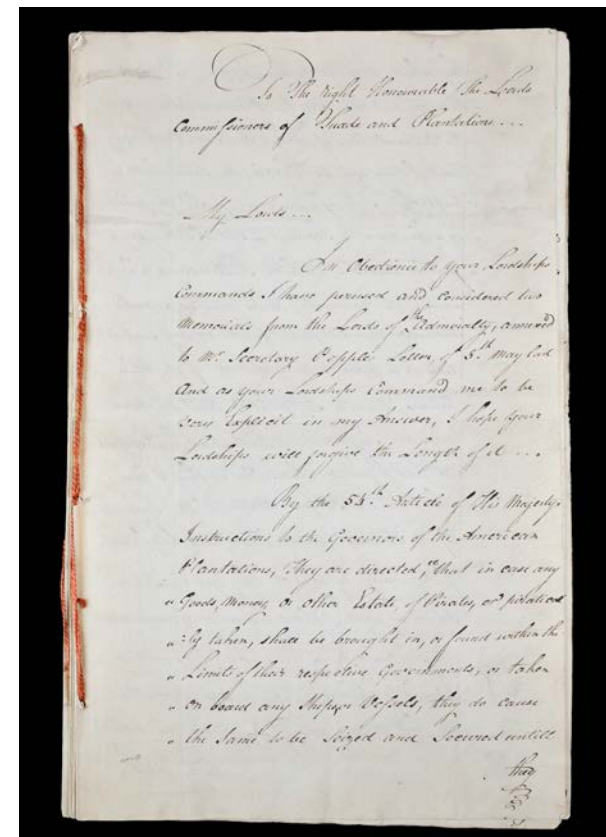 To The Right Honourable The Lords
Commissioners of Trade and Plantations...
My Lords...
In Obedience to your Lordships
Commands I have perused and considered two
Memorials from the Lords of the Admiralty, annexed
to Mr. Secretary Popple Letter, of 5.th May last
And as your Lordships Command me to be
very Explicit in my Answer, I hope your
Lordships will forgive the Length of it...
By the 54.th Article of His Majestys
Instructions to the Governors of the American
Plantations, They are directed, "that in case any
" Goods, Money, or other Estate, of Pirates, or piratical
" :ly taken, shall be brought in, or found within the
" Limits of their respective Governments, or taken
" on board any Ships or Vessels, they do cause
" the Same to be Seized and Secured untill
they